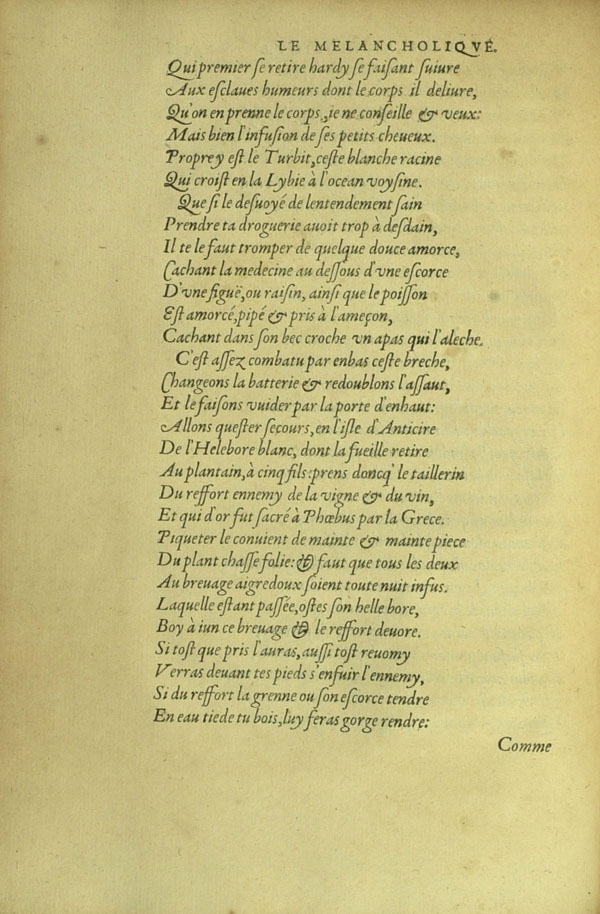 LE MELANCHOLIQVE.
Qui premier ſe retire hardy ſe faiſant ſuiure
Aux eſclaues humeurs dont le corps il deliure,
Qu'on en prenne le corps, ie ne conſeille & veux:
Mais bien l'infuſion de ſes petits cheueux.
Proprey eſt le Turbit, ceſte blanche racine
Qui croiſt en la Lybie à l'ocean voyſine.
Que ſi le deſuoyé de lentendement ſain
Prendre ta droguerie auoit trop à deſdain,
Il te le faut tromper de quelque douce amorce,
Cachant la medecine au deſſous d'vne eſcorce
D'vne figuë, ou raiſin, ainſi que le poiſſon
Eſt amorcé, pipé & pris à l'ameçon,
Cachant dans ſon bec croche vn apas qui l'aleche.
C'eſt aſſez combatu par enbas ceſte breche,
Changeons la batterie & redoublons l'aſſaut,
Et le faiſons vuider par la porte d'enhaut:
Allons queſter ſecours, en l'iſle d'Anticire
De l'Helebore blanc, dont la fueille retire
Au plantain, à cinq fils: prens doncq' le taillerin
Du reffort ennemy de la vigne & du vin,
Et qui d'or fut ſacré à Phœbus par la Grece.
Piqueter le conuient de mainte & mainte piece
Du plant chaſſe folie: & faut que tous les deux
Au breuage aigredoux ſoient toute nuit infus.
Laquelle eſtant paſſée, oſtes ſon helle bore,
Boy à iun ce breuage & le reffort deuore.
Si toſt que pris l'auras, auſſi toſt reuomy
Verras deuant tes pieds s'enfuir l'ennemy,
Si du reffort la grenne ou ſon eſcorce tendre
En eau tiede tu bois, luy feras gorge rendre:
Comme